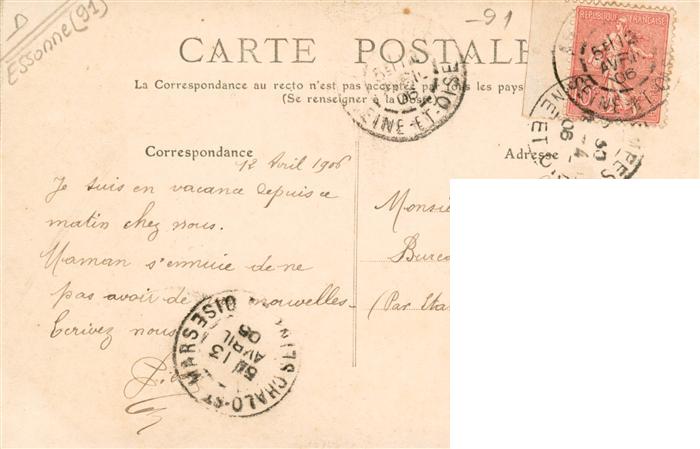 D
Essonne (91)
-91
CARTE POSTALE
RÉPUBLIQUE FRANÇAISE
La Correspondance au recto n'est pas acceptée par tous les pays
(Se renseigner à la Poste)
SEINE-ET-OISE
AVRIL
06
Correspondance
Adresse
12 Avril 1906
Je suis en vacance depuis ce
matin chez nous.
Maman s'ennuie de ne
pas avoir de nouvelles-
Ecrivez nous
Monsie
Burea
(Par Eta
CHALO-ST MARS
13
AVRIL
06